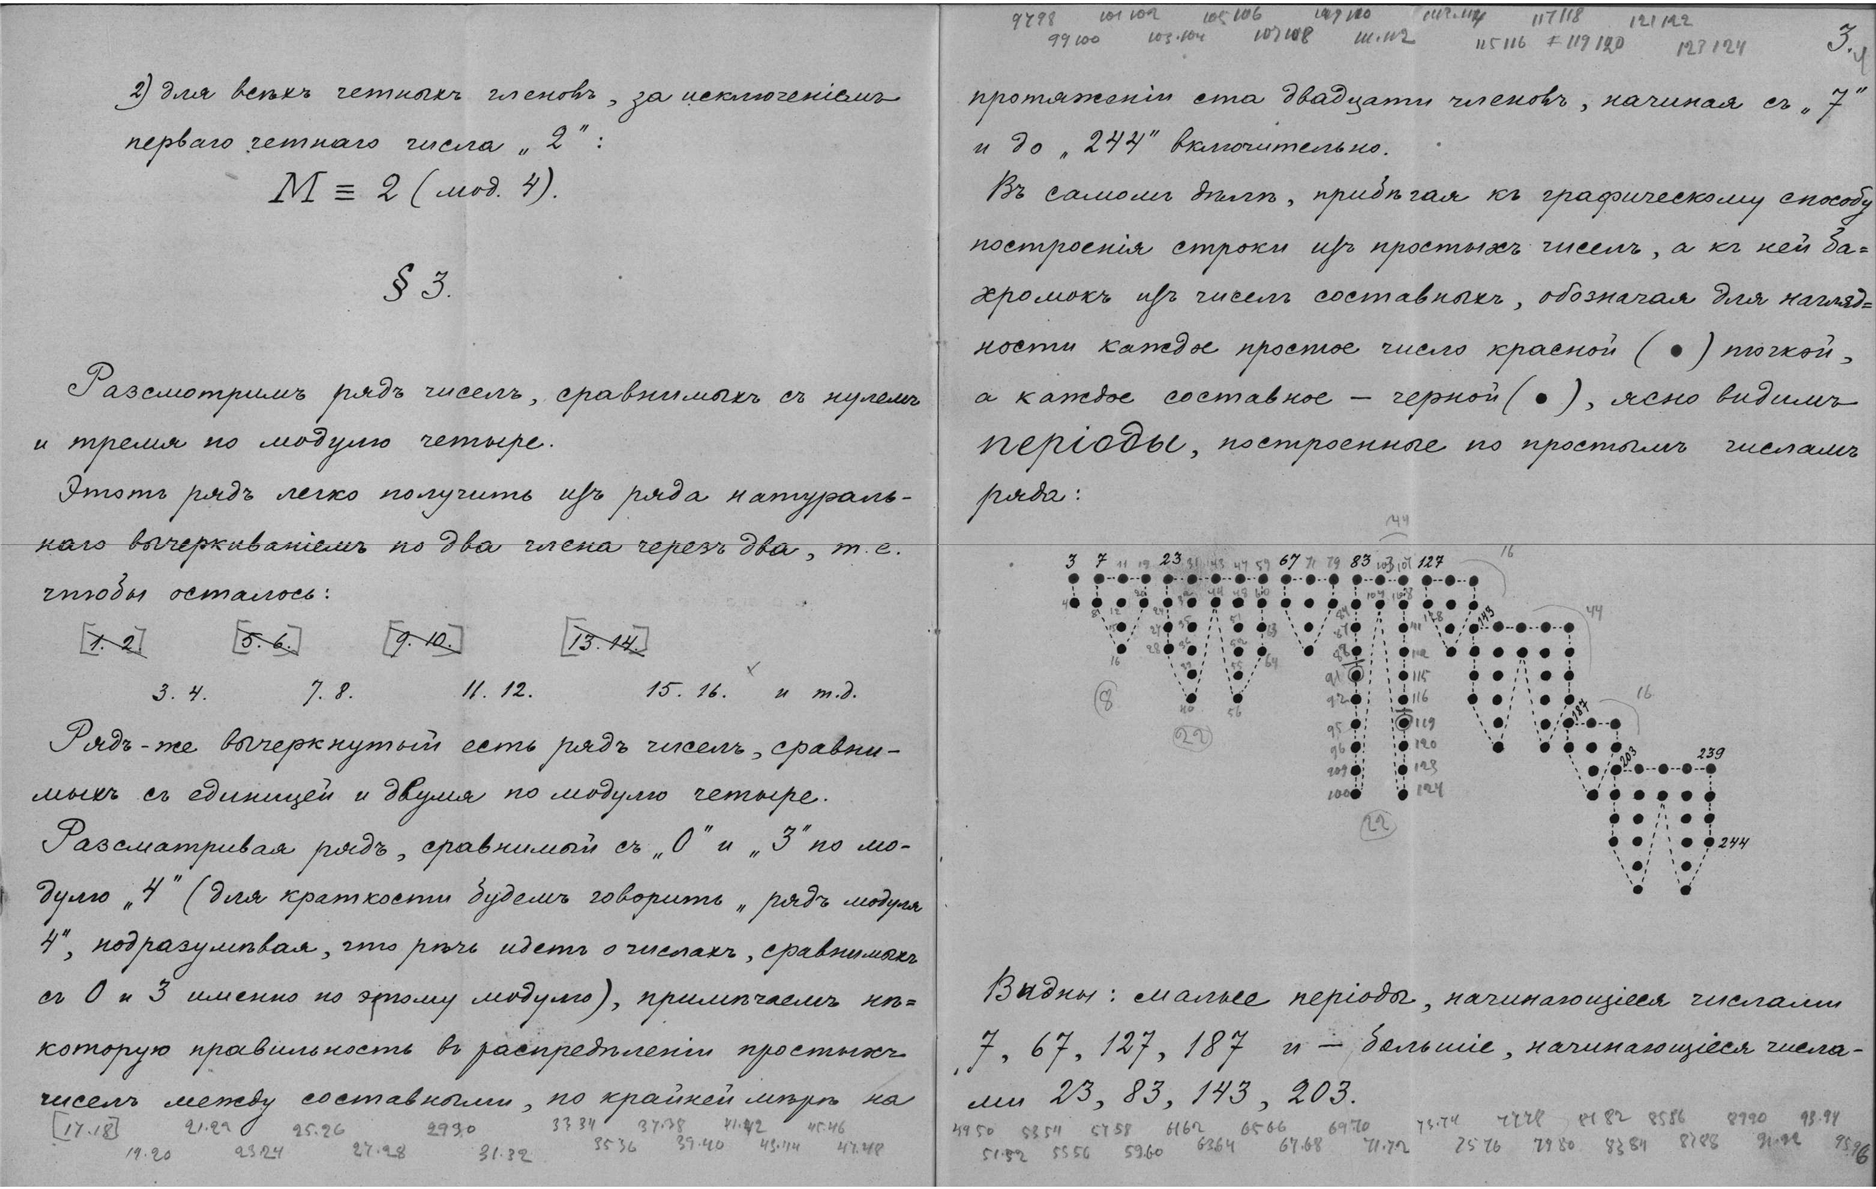 2) для всѣхъ четныхъ членовъ, за исключеніемъ
перваго четнаго числа „2":
M ≡ 2 (мод. 4).
§ 3.
Разсмотримъ рядъ чиселъ, сравнимыхъ съ нулемъ
и тремя по модулю четыре.
Этотъ рядъ легко получить изъ ряда натураль-
наго вычеркиваніемъ по два члена черезъ два, т.е.
чтобы осталось:
[1. 2] [5. 6.] [9. 10.] [13. 14.]
3. 4. 7. 8. 11. 12. 15. 16. и т.д.
Рядъ-же вычеркнутый есть рядъ чиселъ, сравни-
мыхъ съ единицей и двумя по модулю четыре.
Разсматривая рядъ, сравнимый съ „0" и „3" по мо-
дулю „4" (для краткости будемъ говорить „рядъ модуля
4", подразумѣвая, что рѣчь идетъ о числахъ, сравнимыхъ
съ 0 и 3 именно по этому модулю), примѣчаемъ нѣ=
которую правильность въ распредѣленіи простыхъ
чиселъ между составными, по крайней мѣрѣ на
[17.18] 21.22 25.26 29 30 33 34 37.38 41.42 45.46
19.20 23 24 27.28 31.32 35 36 39.40 43.44 47.48
97 98 101 102 105 106 109 110 113.114 117 118 121 122
99 100 103.104 107 108 111.112 115 116 119 120 123 124
3.
протяженіи ста двадцати членовъ, начиная съ „7"
и до „244" включительно.
Въ самомъ дѣлѣ, прибѣгая къ графическому способу
построенія строки изъ простыхъ чиселъ, а къ ней ба=
хромокъ изъ чиселъ составныхъ, обозначая для нагляд=
ности каждое простое число красной (•) точкой,
а каждое составное — черной (•), ясно видимъ
періоды, построенные по простымъ числамъ
ряда:
44
16
3 7 11 19 23 31 43 47 59 67 71 79 83 103 107 127
4 8 12 20 24 32 44 48 60 84 104 108 128
143
44
27 35 51 63 87 111
16 28 36 52 64 88 112
39 55 91 115
40 56 92 116
8
22
95 119
96 120
99 123
100 124
22
187
16
203
239
244
Видны: малые періоды, начинающіеся числами
7, 67, 127, 187 и — большіе, начинающіеся числа-
ми 23, 83, 143, 203.
49 50 53 54 57 58 61 62 65 66 69 70 73.74 77 78 81 82 85 86 89 90 93.94
51.52 55 56 59.60 63 64 67.68 71.72 75 76 79 80 83 84 87 88 91.92 95 96